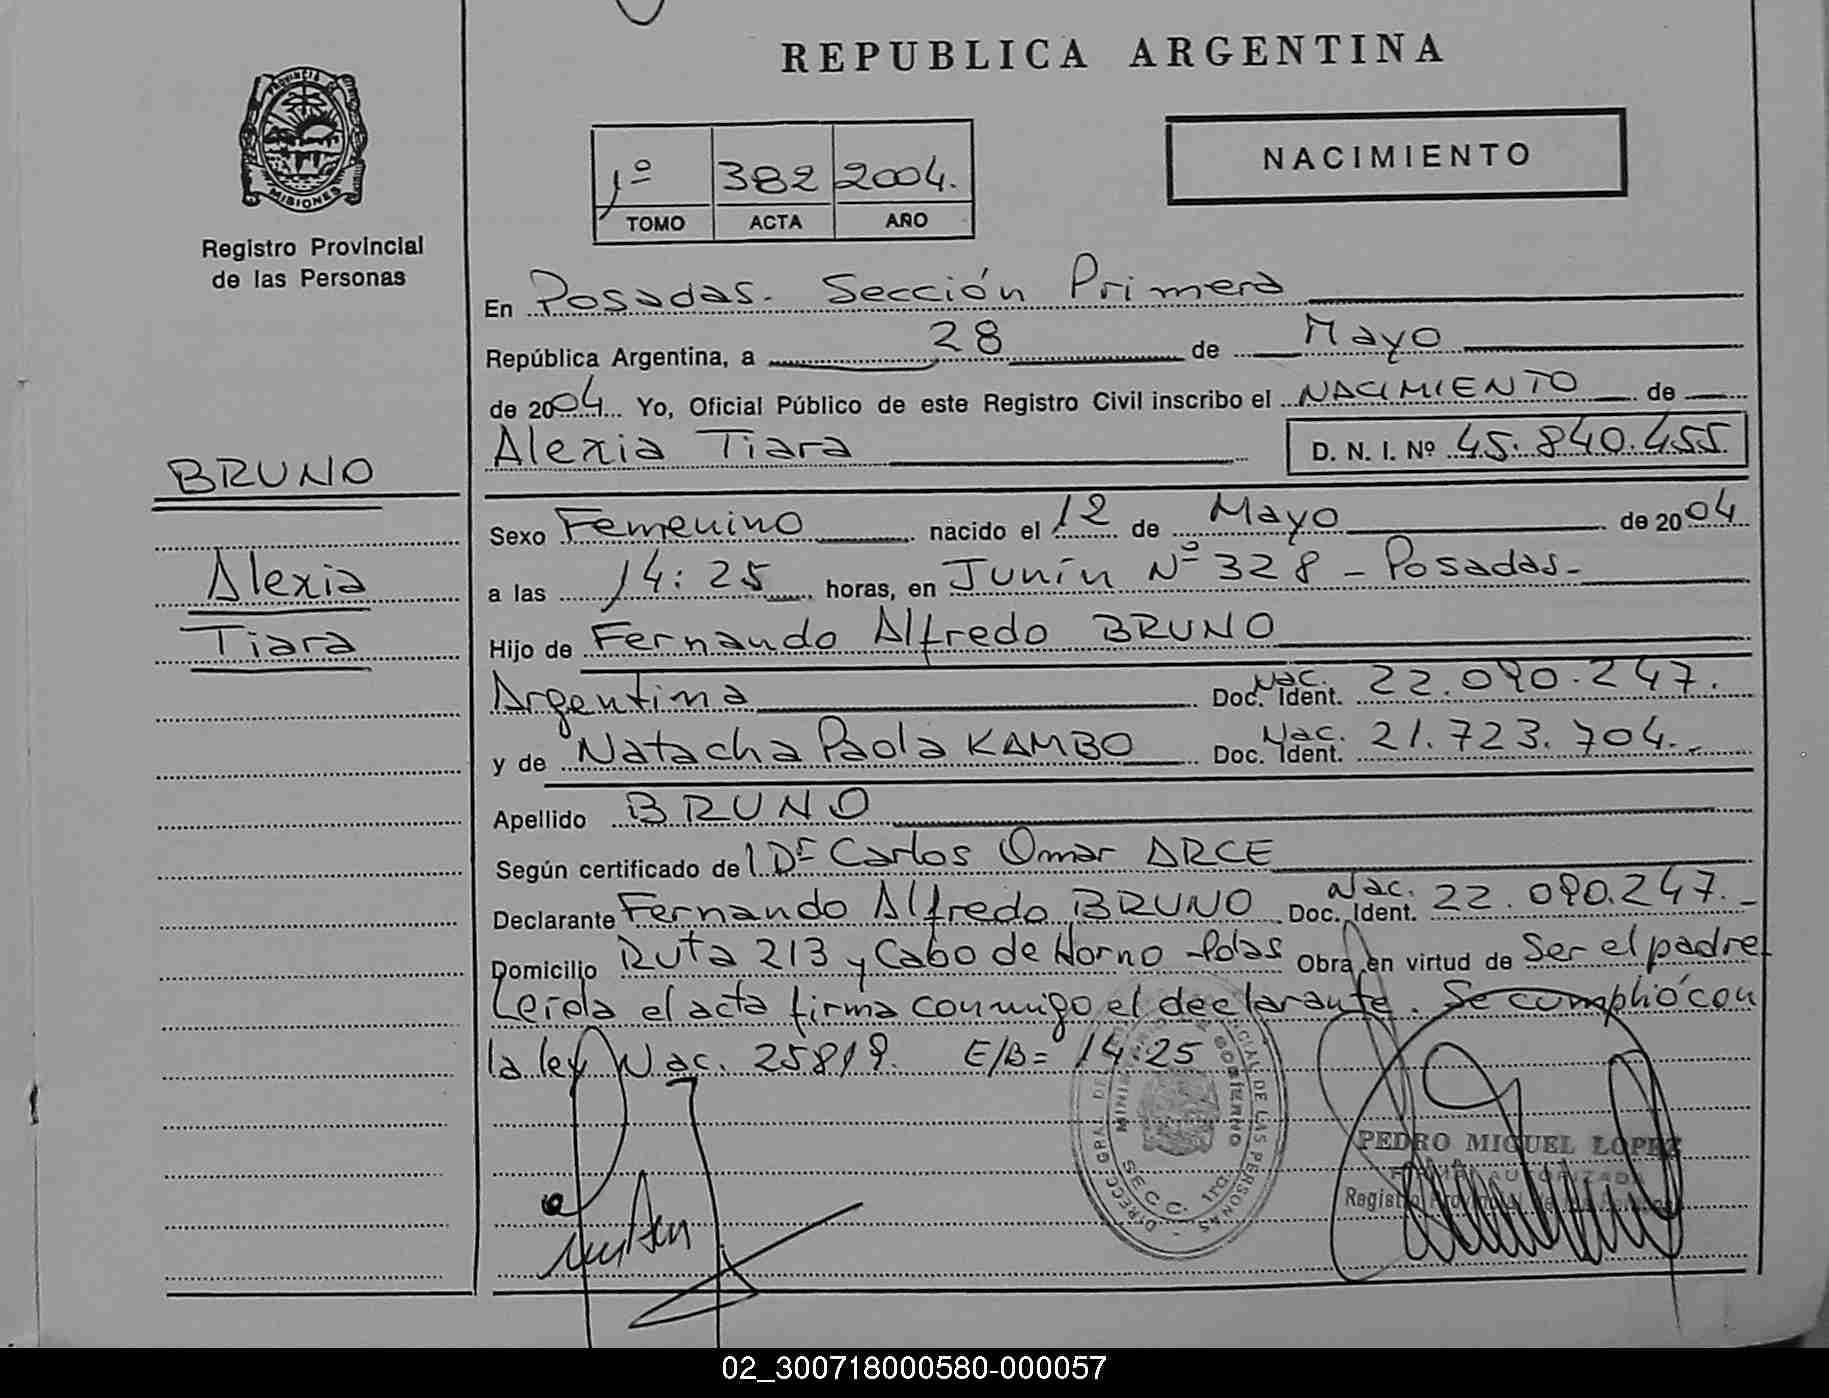 REPUBLICA ARGENTINA
PROVINCIA DE
MISIONES
Registro Provincial
de las Personas
1º 382 2004.
TOMO ACTA AÑO
NACIMIENTO
BRUNO
Alexia
Tiara
En Posadas. Sección Primera
República Argentina, a 28 de Mayo
de 2004 Yo, Oficial Público de este Registro Civil inscribo el NACIMIENTO de
Alexia Tiara D. N. I. Nº 45.840.455
Sexo Femenino nacido el 12 de Mayo de 2004
a las 14:25 horas, en Junín Nº 328 - Posadas-
Hijo de Fernando Alfredo BRUNO
Argentina Doc. Nac. Ident. 22.090.247.
y de Natacha Paola KAMBO Doc. Nac. Ident. 21.723.704.-
Apellido BRUNO
Según certificado del Dr Carlos Omar ARCE
Declarante Fernando Alfredo BRUNO Doc. Nac. Ident. 22.090.247.-
Domicilio Ruta 213 y Cabo de Horno -Pdas Obra en virtud de Ser el padre
Leída el acta firma conmigo el declarante. Se cumplió con
la ley Nac. 25819. E/B= 14:25
DE LAS PERSONAS
GOBIERNO
SECC. 1ra.
PEDRO MIGUEL LOPEZ
FIRMA AUTORIZADA
Registro Provincial de las Personas
02_300718000580-000057